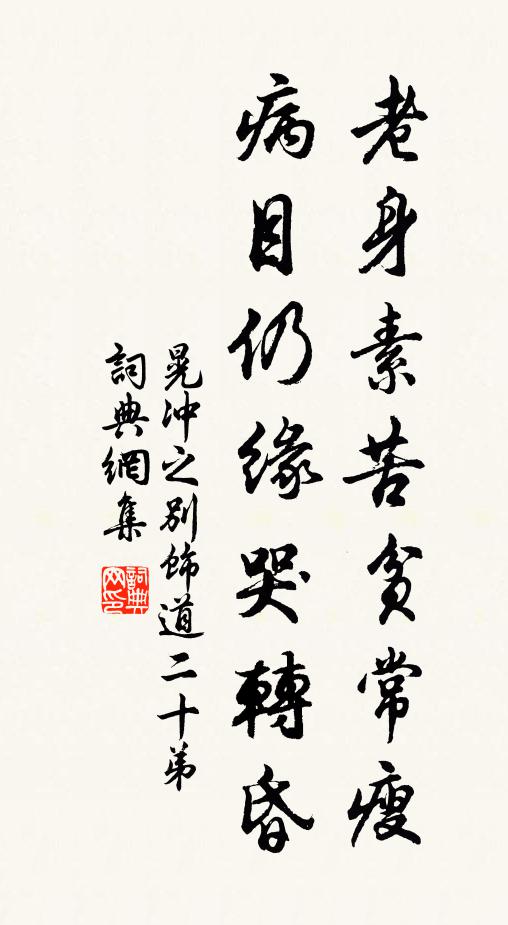 老身素苦貧常瘦
病目仍緣哭轉昏
晁沖之別飾道二十弟
詞典網集
詞典網印